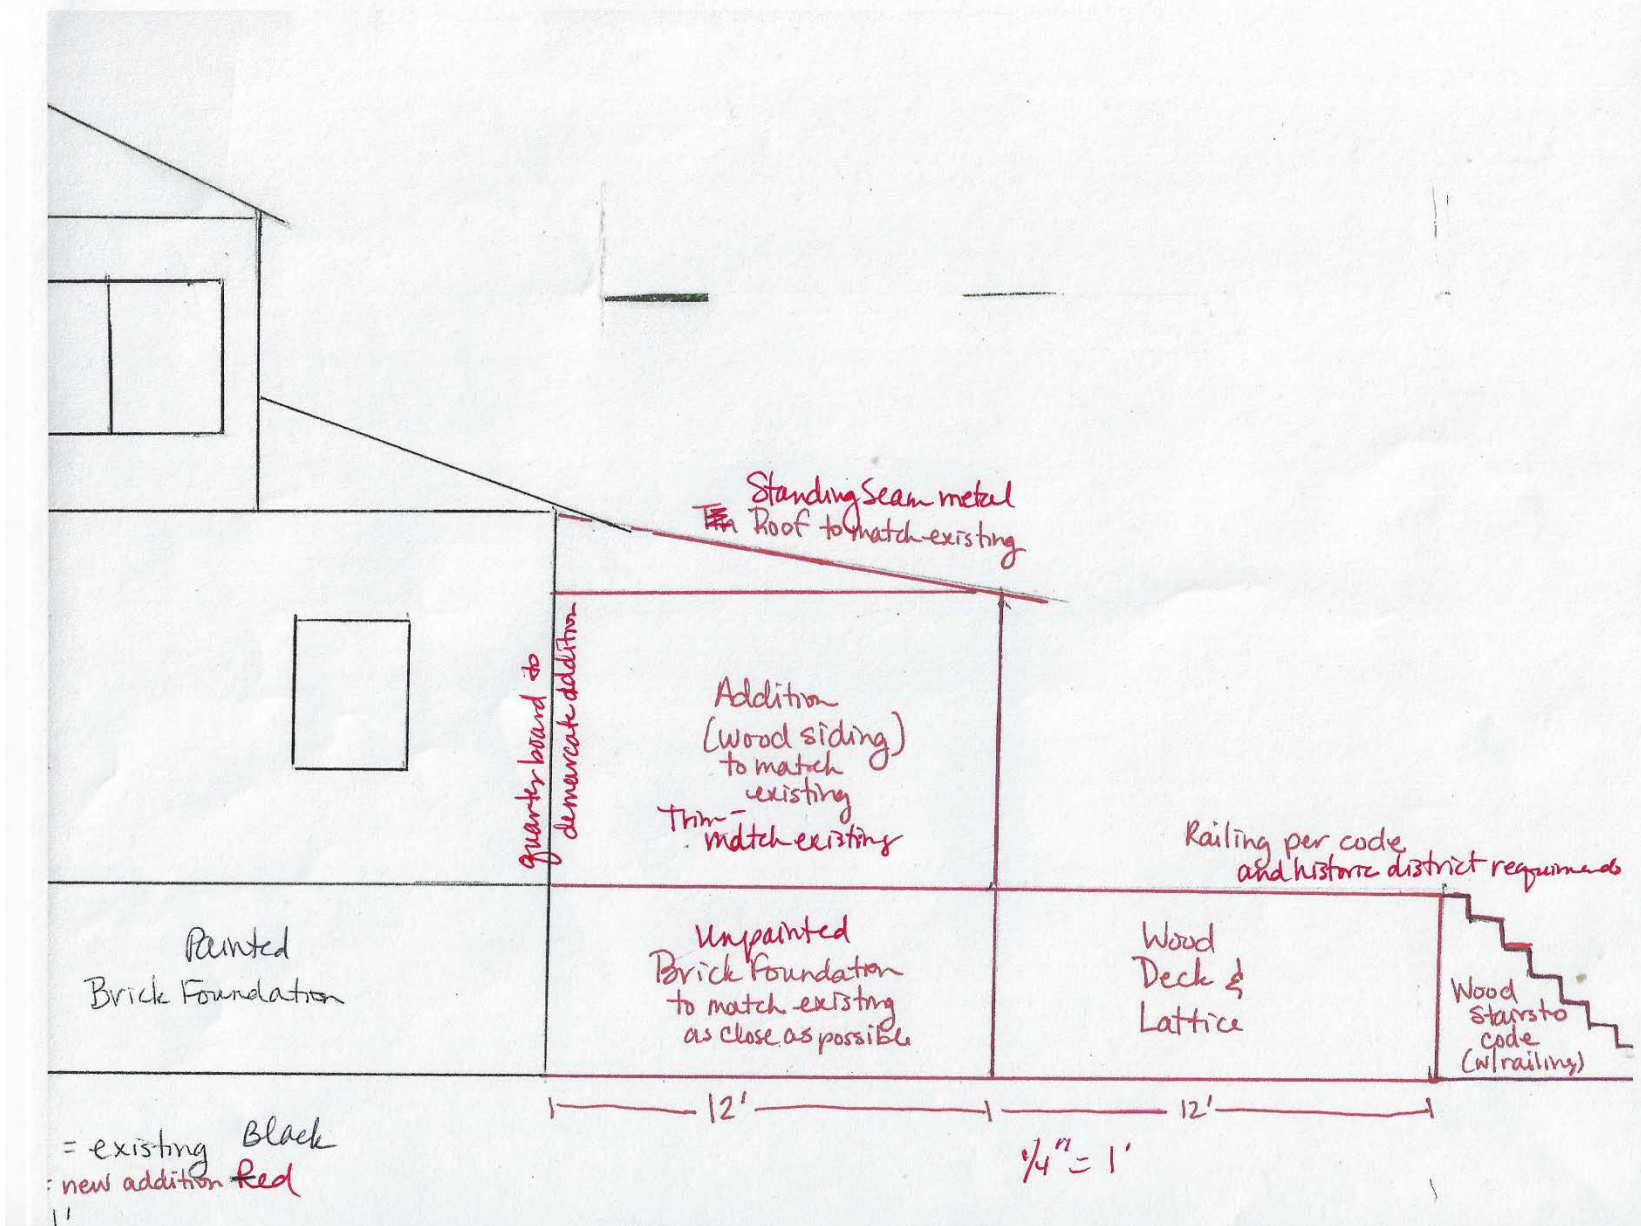 Standing Seam metal
Roof to match existing
quarter board to
demarcate addition
Addition
(wood siding)
to match
existing
Trim -
match existing
Railing per code
and historic district requirments
Painted
Brick Foundation
Unpainted
Brick Foundation
to match existing
as close as possible
Wood
Deck &
Lattice
Wood
Stairs to
code
(w/railing)
12'
12'
1/4" = 1'
= existing Black
= new addition Red
1'